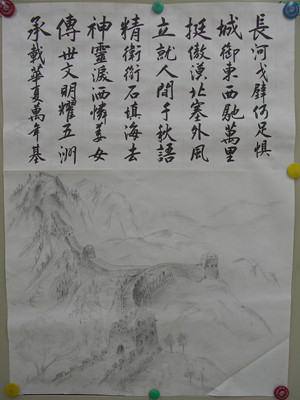 長河戈壁何足懼
城御東西馳萬里
挺傲漠北塞外風
立就人間千秋語
精衛銜石填海去
神靈淚洒憐姜女
傳世文明耀五洲
承載華夏萬年基